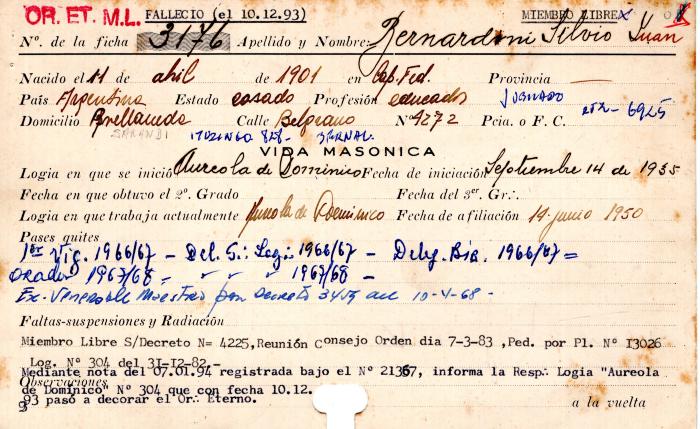 OR. ET. M.L. FALLECIO (el 10.12.93) MIEMBRO LIBRE
Nº. de la ficha 3176 Apellido y Nombre: Bernardoni Silvio Juan
Nacido el 11 de abril de 1901 en Cap. Fed. Provincia —
País Argentina Estado casado Profesión educador JUBILADO
Domicilio Avellaneda Calle Belgrano Nº 4272 Pcia. o F. C. 6925
SARANDI ITUZAINGO 828 - BERNAL
VIDA MASONICA
Logia en que se inició Aureola de Dominico Fecha de iniciación Septiembre 14 de 1935
Fecha en que obtuvo el 2º. Grado Fecha del 3er. Gr∴
Logia en que trabaja actualmente Aureola de Dominico Fecha de afiliación 14 junio 1950
Pases quites
1er Vig. 1966/67 - Del. G∴ Log∴ 1966/67 - Deleg. Bia. 1966/67 =
Orador 1967/68 - " " 1967/68 -
Ex-Venerable Maestro por Decreto 3459 del 10-4-68-
Faltas-suspensiones y Radiación
Miembro Libre S/Decreto N= 4225, Reunión Consejo Orden dia 7-3-83 ,Ped. por Pl. Nº I3026
Log. Nº 304 del 3I-I2-82.-
Mediante nota del 07.01.94 registrada bajo el Nº 21367, informa la Resp∴ Logia "Aureola
Observaciones
de Domínico" Nº 304 que con fecha 10.12.
93 pasó a decorar el Or∴ Eterno.
a la vuelta